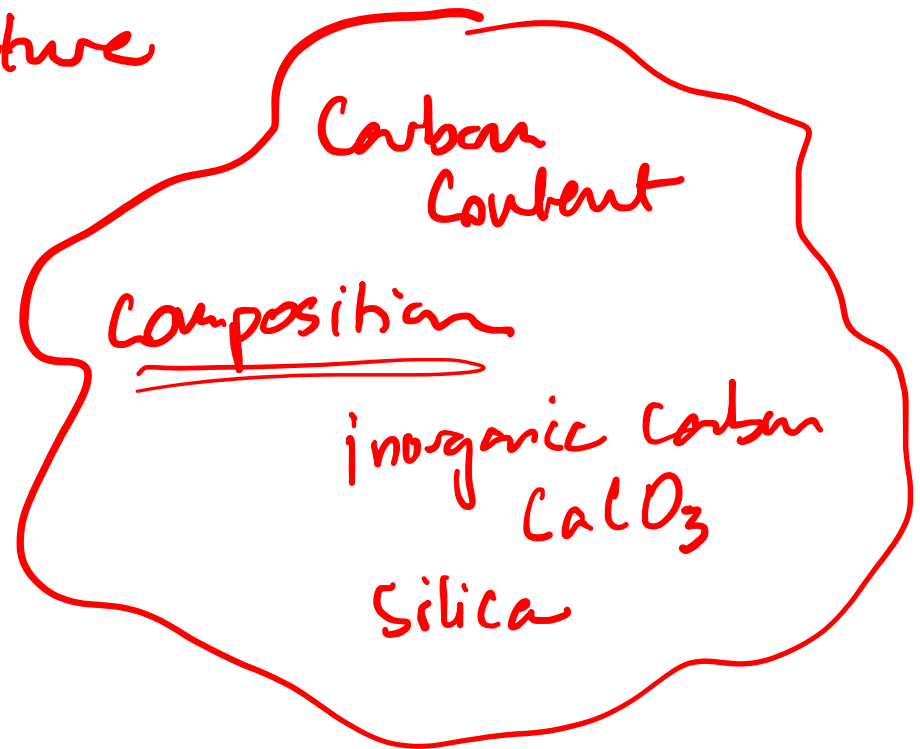 ture
Carbon
Content
Composition
inorganic Carbon
CaCO3
Silica